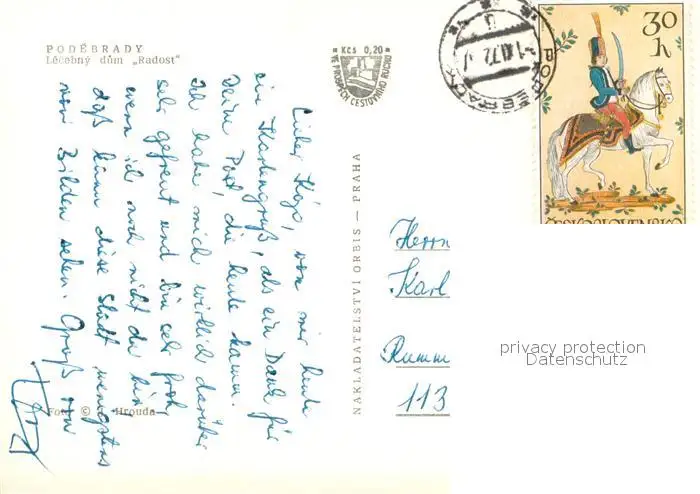 PODĚBRADY
Léčebný dům „Radost"
Kčs 0,20
VE PROSPĚCH CESTOVNÍHO RUCHU
-1.XI.72
30
h
ČESKOSLOVENSKO
Lieber von mir heute
ein Kartengruß, als ein Dank für
Deine Post, die heute kam.
Ich habe mich wirklich darüber
sehr gefreut und bin sehr froh,
wenn ich noch nicht da bin
daß kann diese Stadt wenigstens
Bilden sehen. Gruß von
NAKLADATELSTVÍ ORBIS — PRAHA
Herrn
Karl
Rumm
113
privacy protection
Datenschutz
Foto © Hrouda